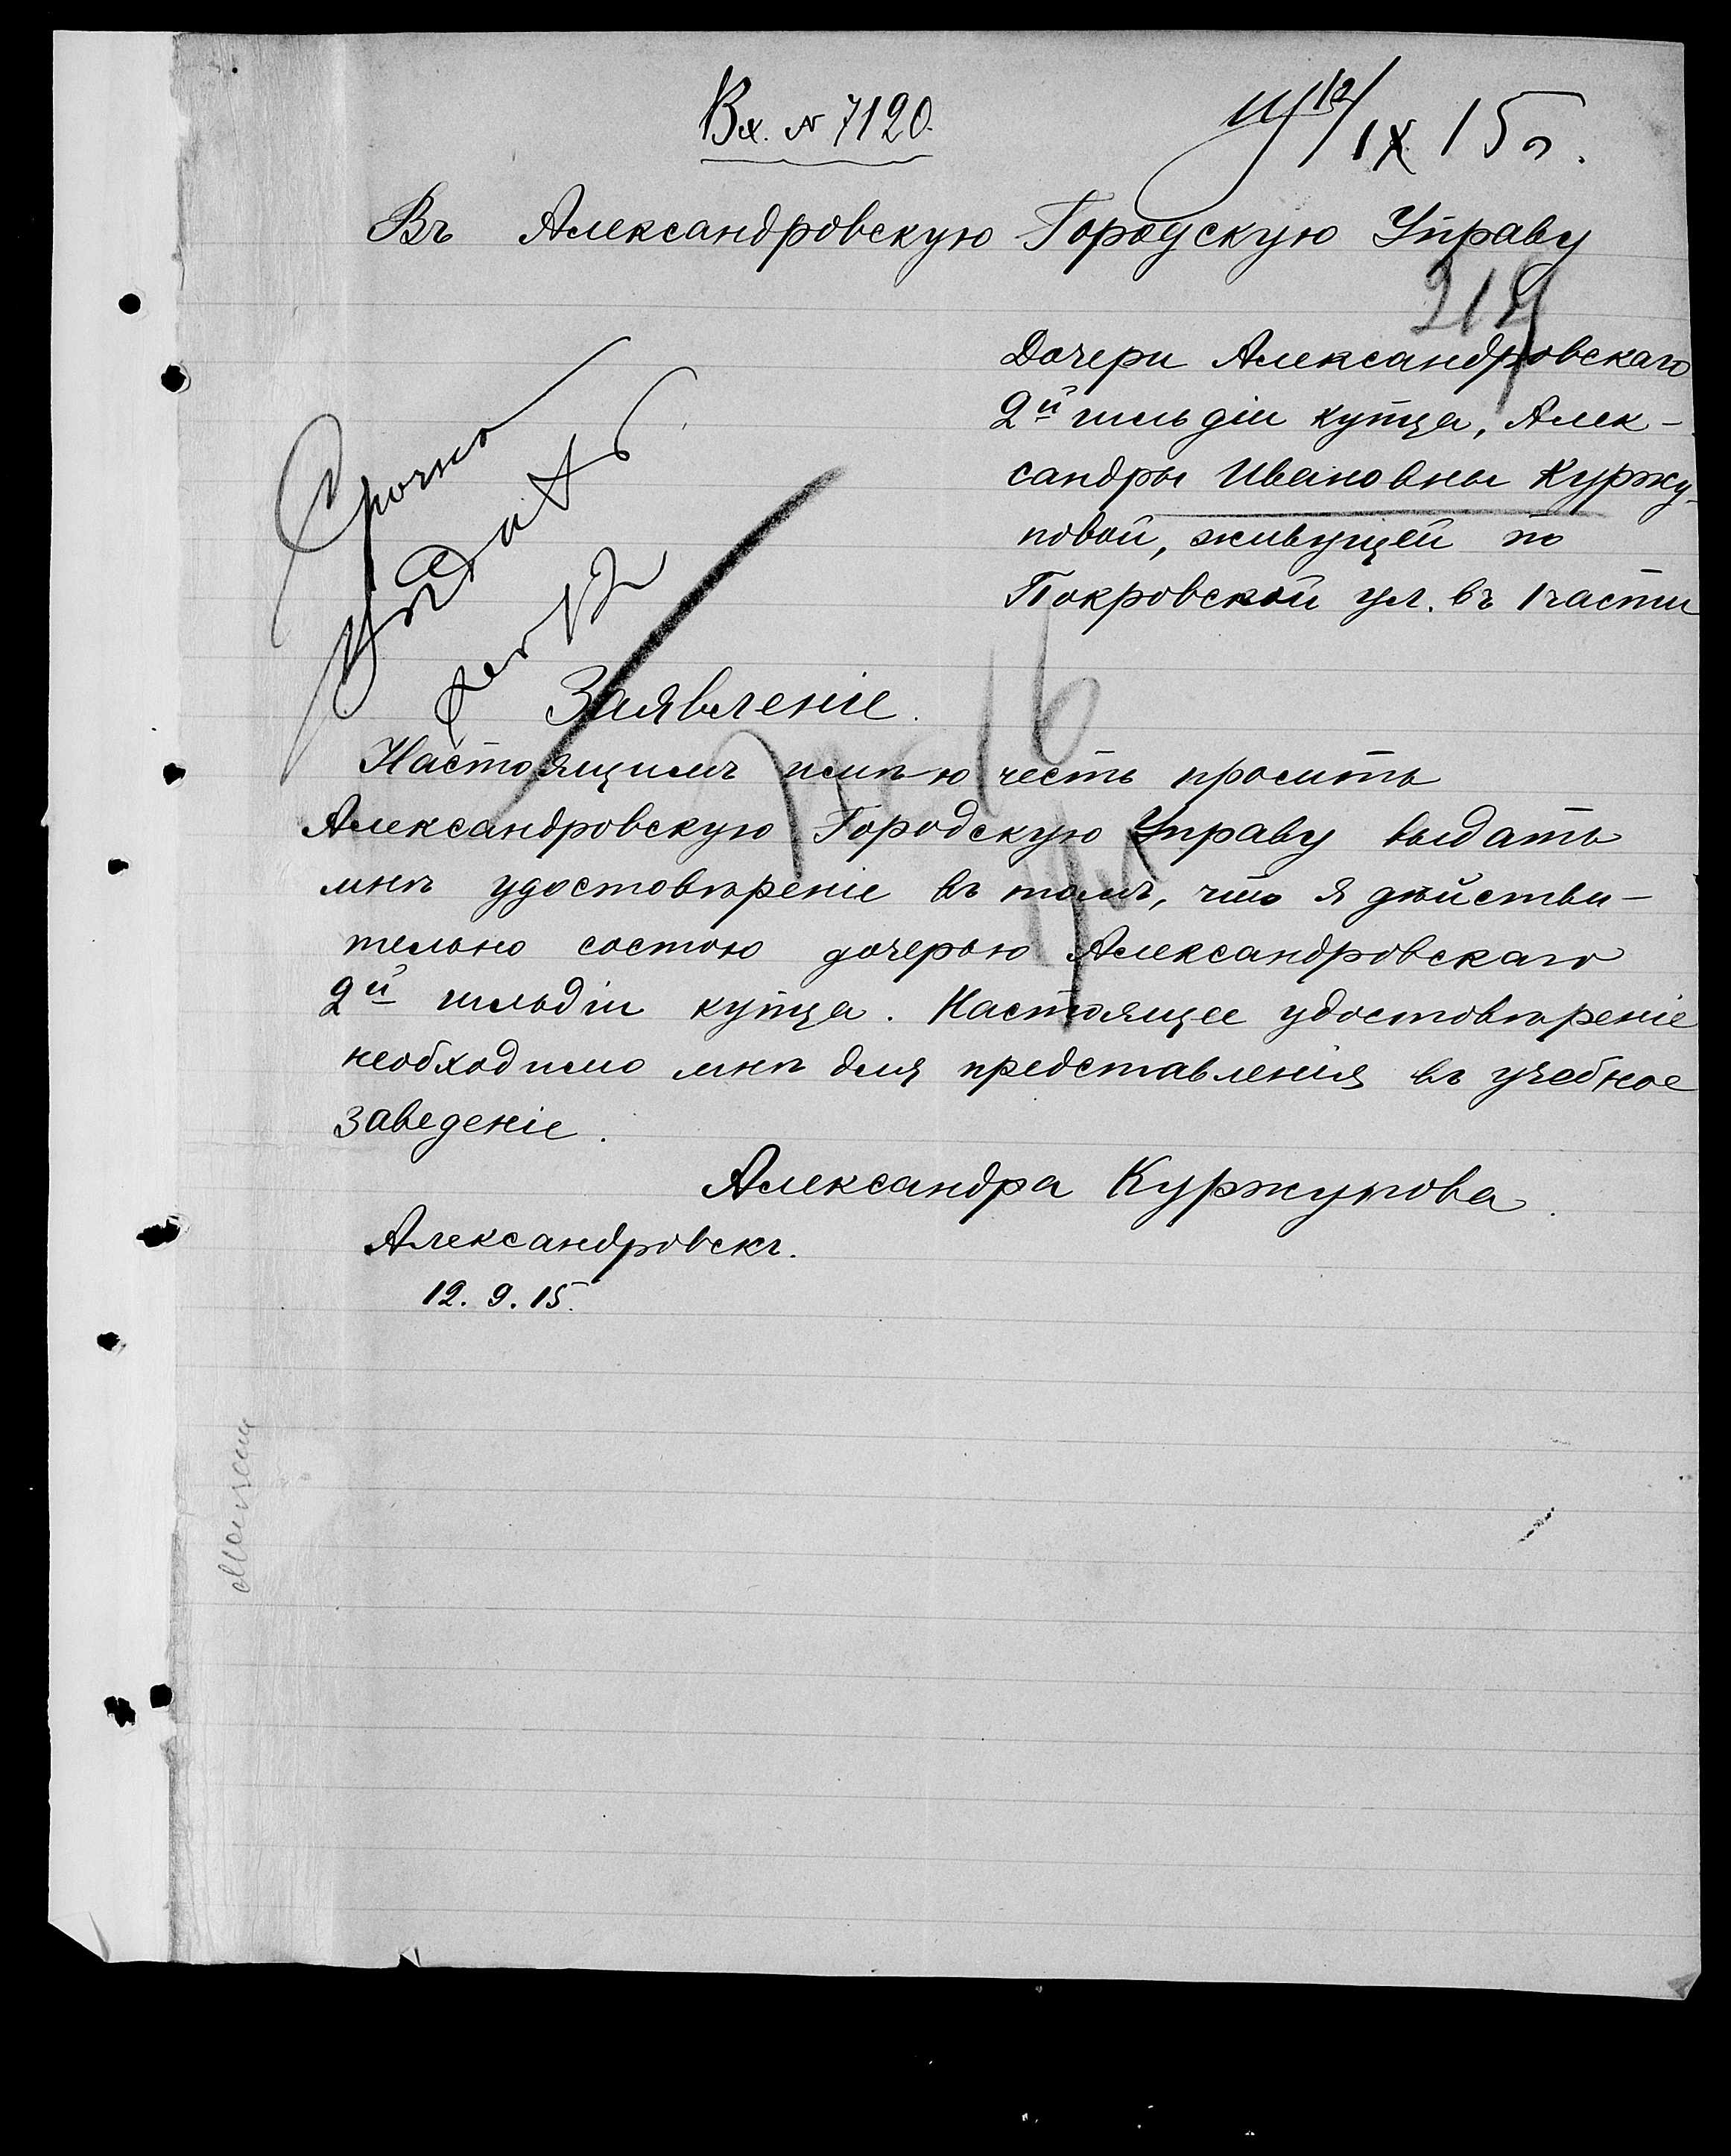 Вх. № 7120.
12/IX 15 г.
Въ Александровскую Городскую Управу
219
Дочери Александровскаго
2й гильдіи купца, Алек-
сандры Ивановны Куржу-
повой, живущей по
Покровской ул. въ 1 части
Срочно
Выдать
Заявленіе.
Настоящимъ имѣю честь просить
Александровскую Городскую Управу выдать
мнѣ удостовѣреніе въ томъ, что я дѣйстви-
тельно состою дочерью Александровскаго
2й гильдіи купца. Настоящее удостовѣреніе
необходимо мнѣ для представленія въ учебное
заведеніе.
Александра Куржупова.
Александровскъ.
12. 9. 15.